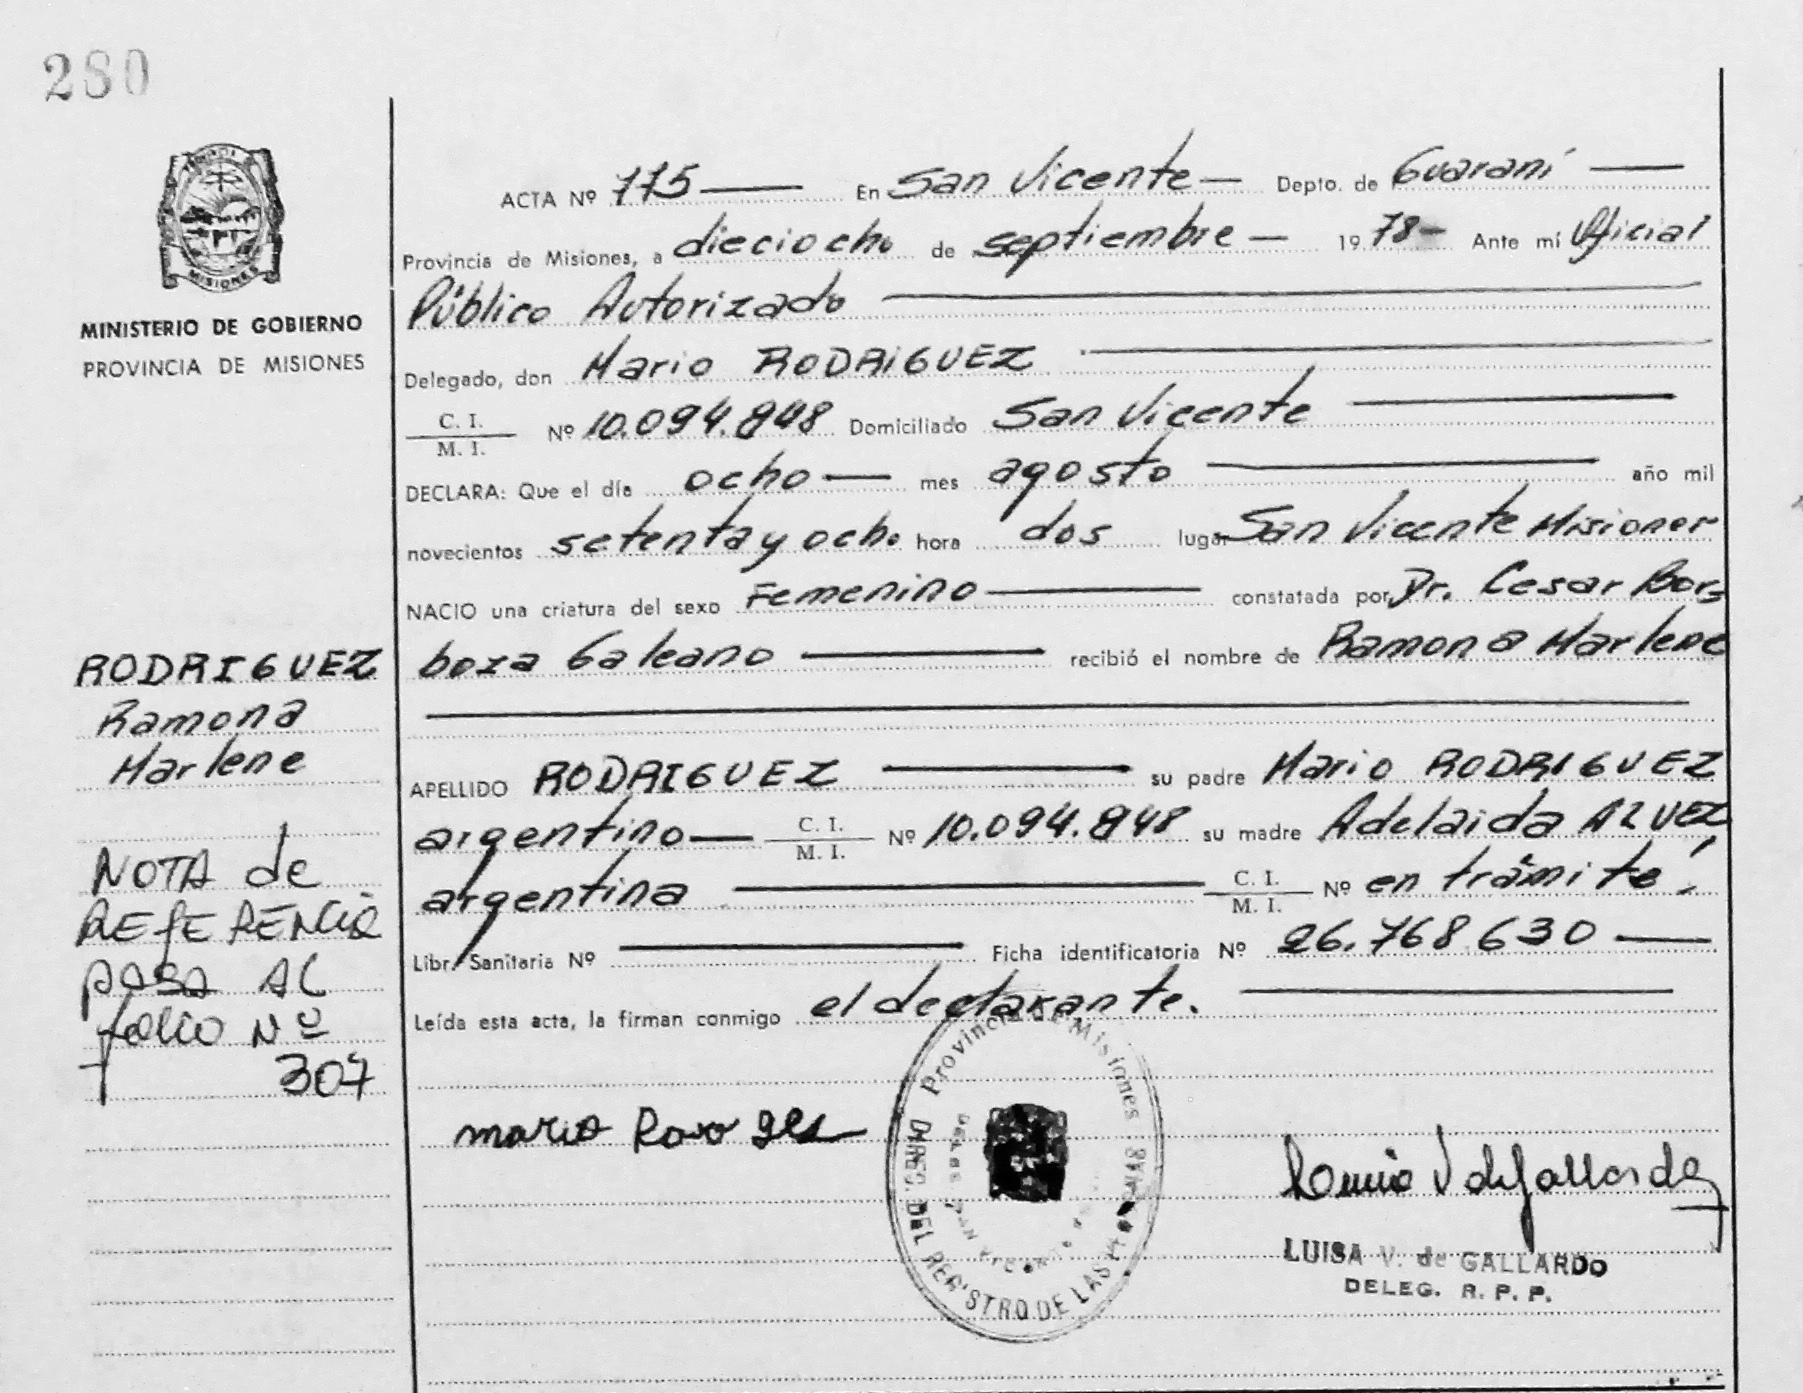 280
PROVINCIA
MISIONES
MINISTERIO DE GOBIERNO
PROVINCIA DE MISIONES
ACTA Nº 115 En San Vicente Depto. de Guaraní
Provincia de Misiones, a dieciocho de septiembre 19 78 Ante mí Oficial
Público Autorizado
Delegado, don Mario RODRIGUEZ
C. I.
M. I. Nº 10.094.848 Domiciliado San Vicente
DECLARA: Que el día ocho mes agosto año mil
novecientos setenta y ocho hora dos lugar San Vicente Misiones
NACIO una criatura del sexo Femenino constatada por Dr. Cesar Bor
boza Galeano recibió el nombre de Ramona Marlene
RODRIGUEZ
Ramona
Marlene
APELLIDO RODRIGUEZ su padre Mario RODRIGUEZ
argentino C. I.
M. I. Nº 10.094.848 su madre Adelaida ALVEZ
argentina C. I.
M. I. Nº en trámite
Libr. Sanitaria Nº Ficha identificatoria Nº 26.768.630
Leída esta acta, la firman conmigo el declarante.
NOTA de
REFERENCIA
pasa AL
folio Nº
307
Provincia de Misiones
DIREC. DEL REGISTRO DE LAS
mario
LUISA V. de GALLARDO
DELEG. R. P. P.